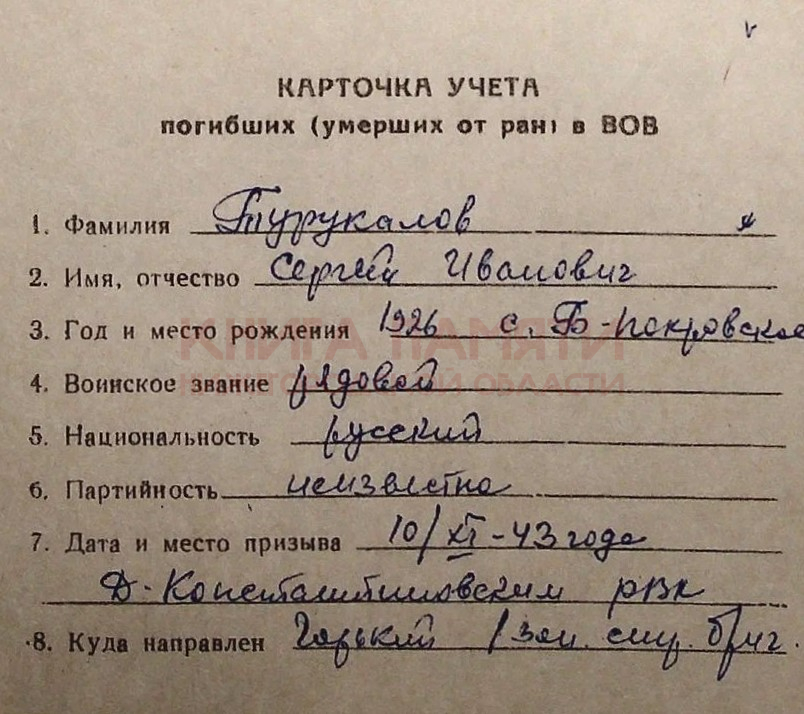 КАРТОЧКА УЧЕТА
погибших (умерших от ран) в ВОВ
1. Фамилия Турукалов
2. Имя, отчество Сергей Иванович
3. Год и место рождения 1926 с. Б-Покровское
КНИГА ПАМЯТИ
НИЖЕГОРОДСКОЙ ОБЛАСТИ
4. Воинское звание рядовой
5. Национальность русский
6. Партийность неизвестно
7. Дата и место призыва 10/XI-43 года
Д-Константиновским РВК
8. Куда направлен Горький